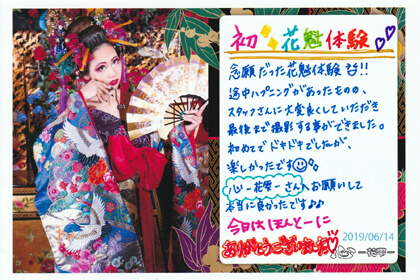 初花魁体験
念願だった花魁体験
途中ハプニングがあったものの、
スタッフさんに大変良くしていただき
最後まで撮影する事ができました。
初めてでドキドキでしたが、
楽しかったです
心-花雫-さんへお願いして
本当に良かったですよ
今日はほんとーに
ありがとうございました
2019/06/14